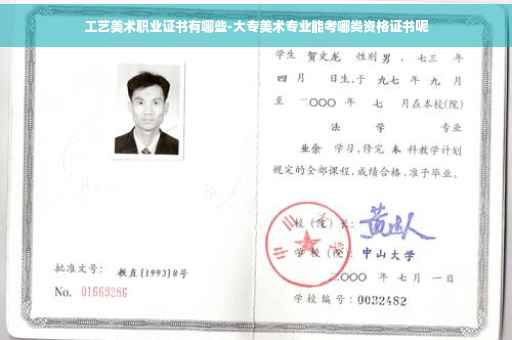 工艺美术职业证书有哪些-大专美术专业能考哪类资格证书呢
学生 贺文龙 性别 男 、七三 年
四 月 日生,于 九七 年 九 月
至 二〇〇〇 年 七 月在本校(院)
法 学 专业
业余 学习,修完 本 科教学计划
规定的全部课程,成绩合格,准予毕业。
校(院)长:
学校(院): 中山大学
二〇〇〇 年 七 月 一 日
学校编号: 0032482
批准文号: 教直[1993]8号
No. 01669286